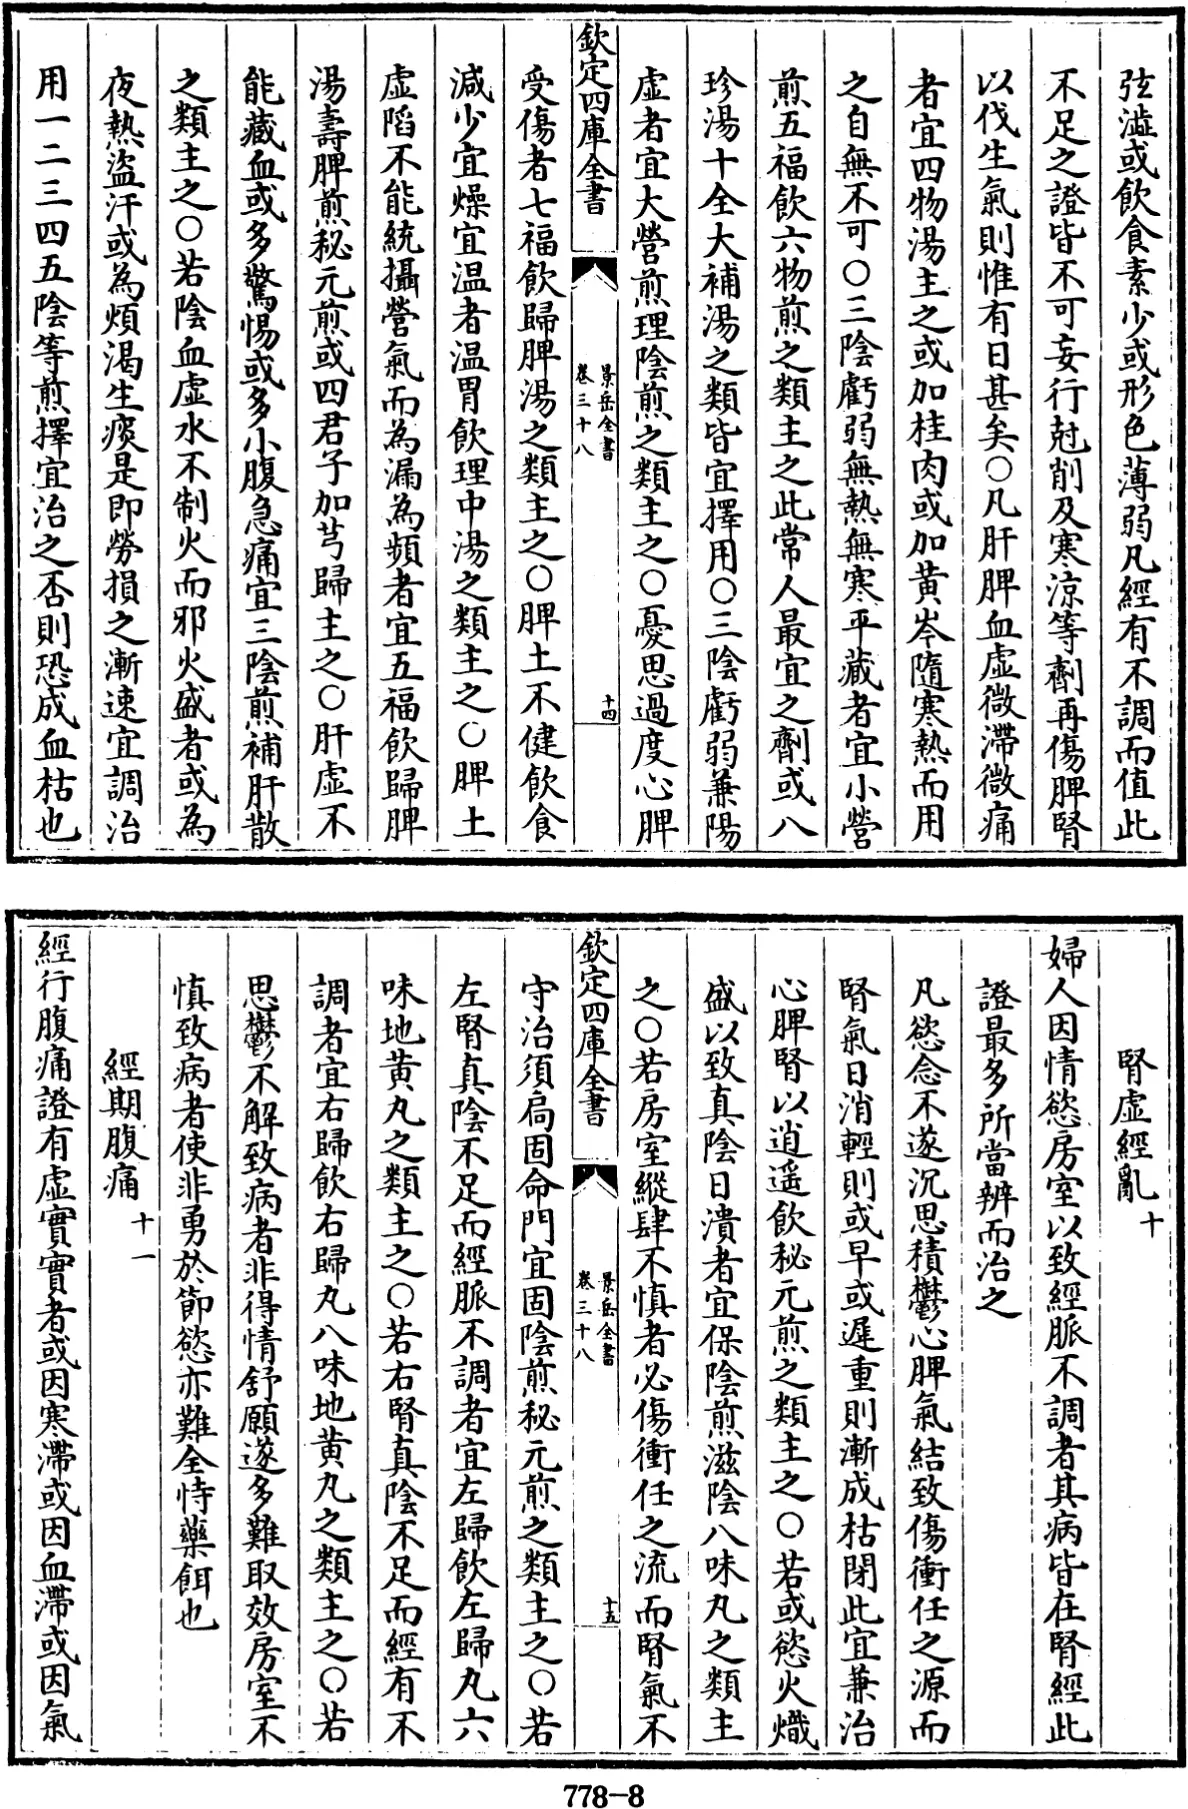 弦澁或飲食素少或形色薄弱凡經有不調而值此
不足之證皆不可妄行尅削及寒涼等劑再傷脾腎
以伐生氣則惟有日甚矣○凡肝脾血虛微滯微痛
者宜四物湯主之或加桂肉或加黄岑隨寒熱而用
之自無不可○三陰虧弱無熱無寒平藏者宜小營
煎五福飲六物煎之類主之此常人最宜之劑或八
珍湯十全大補湯之類皆宜擇用○三陰虧弱兼陽
虛者宜大營煎理陰煎之類主之○憂思過度心脾
欽定四庫全書
景岳全書
卷三十八
十四
受傷者七福飲歸脾湯之類主之○脾土不健飲食
減少宜燥宜温者温胃飲理中湯之類主之○脾土
虛陷不能統攝營氣而為漏為頻者宜五福飲歸脾
湯壽脾煎秘元煎或四君子加芎歸主之○肝虛不
能藏血或多驚惕或多小腹急痛宜三陰煎補肝散
之類主之○若陰血虛水不制火而邪火盛者或為
夜熱盜汗或為煩渴生痰是即勞損之漸速宜調治
用一二三四五陰等煎擇宜治之否則恐成血枯也
腎虛經亂 十
婦人因情慾房室以致經脈不調者其病皆在腎經此
證最多所當辨而治之
凡慾念不遂沉思積鬱心脾氣結致傷衝任之源而
腎氣日消輕則或早或遲重則漸成枯閉此宜兼治
心脾腎以逍遥飲秘元煎之類主之○若或慾火熾
盛以致真陰日潰者宜保陰煎滋陰八味丸之類主
之○若房室縱肆不慎者必傷衝任之流而腎氣不
欽定四庫全書
景岳全書
卷三十八
十五
守治須扃固命門宜固陰煎秘元煎之類主之○若
左腎真陰不足而經脈不調者宜左歸飲左歸丸六
味地黄丸之類主之○若右腎真陰不足而經有不
調者宜右歸飲右歸丸八味地黄丸之類主之○若
思鬱不解致病者非得情舒願遂多難取效房室不
慎致病者使非勇於節慾亦難全恃藥餌也
經期腹痛 十一
經行腹痛證有虛實實者或因寒滯或因血滯或因氣
778-8